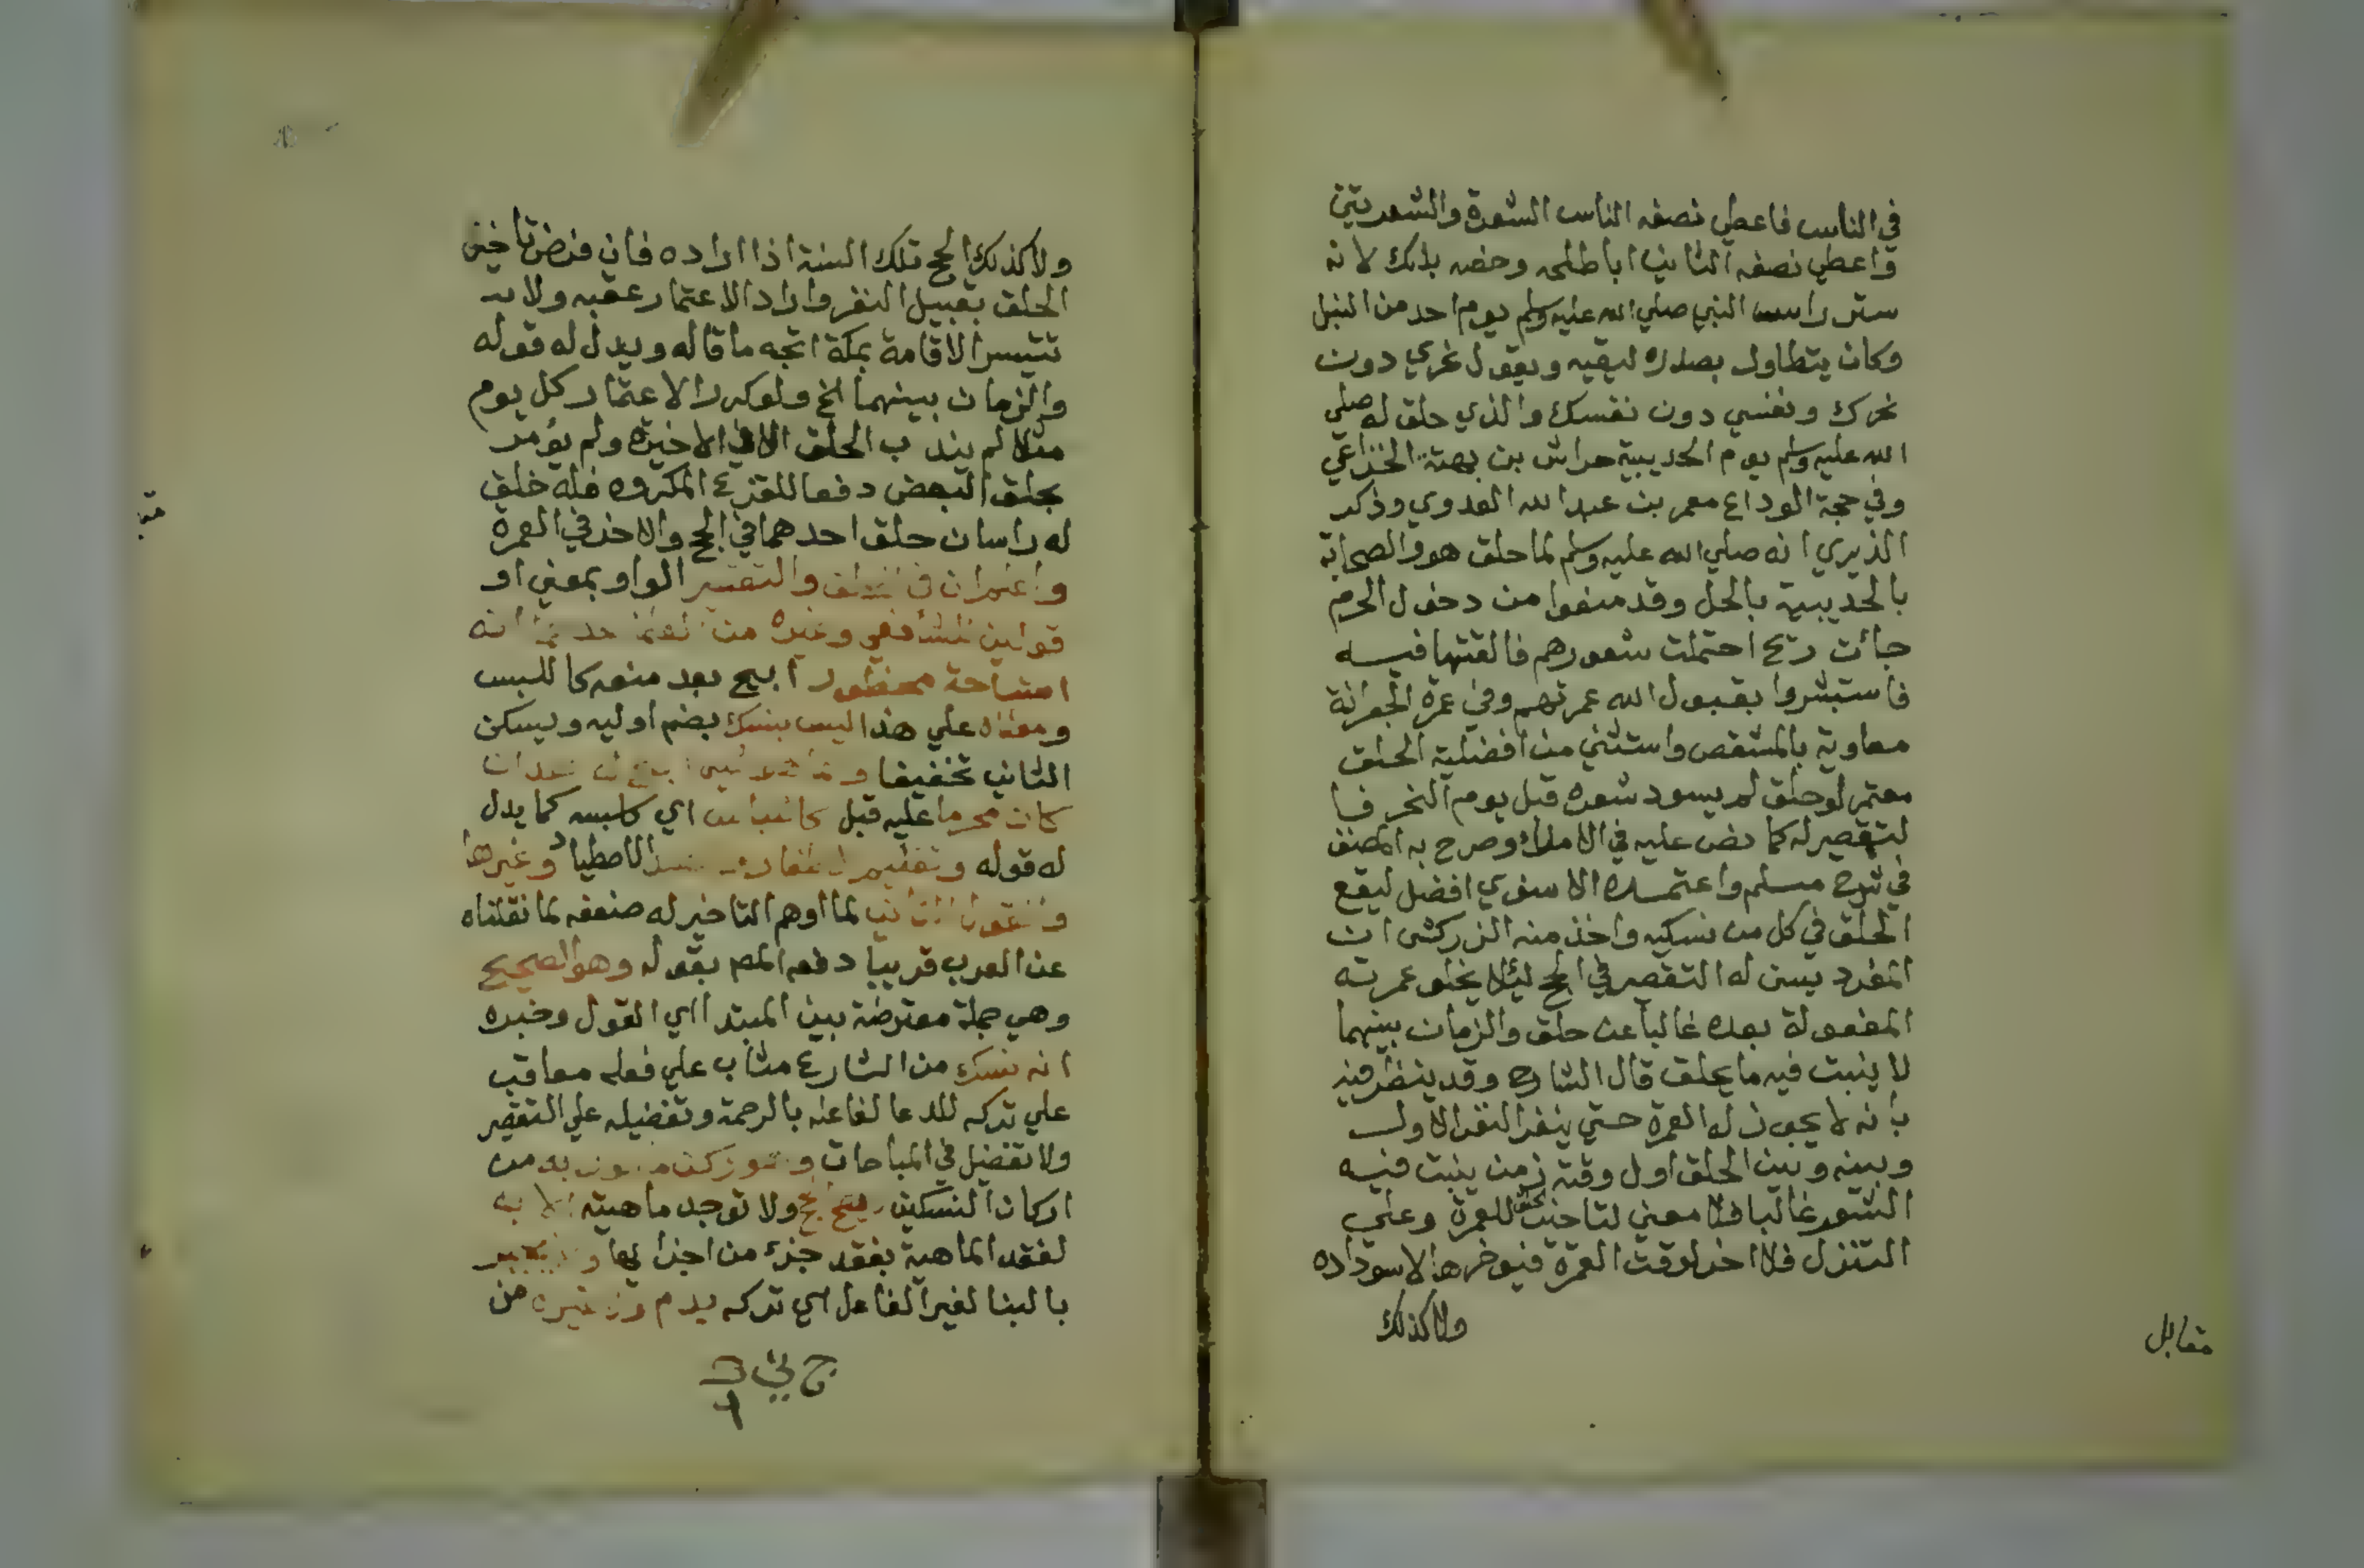 في الناس فاعطي نصفه الناس الشعرة والشعرتين
واعطي نصفه الثاني ابا طلحه وخصه بذلك لانه
ستر راس النبي صلي الله عليه وسلم يوم احد من النبل
وكان يتطاول بصدره ليقيه ويقول نحري دون
نحرك ونفسي دون نفسك والذي حلق له صلي
الله عليه وسلم يوم الحديبية حراش بن الخزاعي
وفي حجة الوداع معمر بن عبد الله العدوي وذكر
الذيري انه صلي الله عليه وسلم لما حلق هو والصحابة
بالحديبية بالحل وقد منعوا من دخول الحرم
جأت ريح احتملت شعورهم فالقتها فيه
فاستبشروا بقبول الله عمرتهم وفي عمرة الجعرانة
معاوية بالمشقص واستثني من افضلية الحلق
معتمر لو حلق لم يسود شعره قبل يوم النحر فا
لتقصير له كما نص عليه في الاملاء وصرح به المصنف
في شرح مسلم واعتمده الاسنوي افضل ليقع
الحلق في كل من نسكيه واخذ منه الزركشي ان
المفرد يسن له التقصير في الحج ليلا يخلو عمرته
المفعولة بعده غالبا عن حلق والزمان بينهما
لا ينبت فيه ما يحلق قال الشارح وقد ينظر فيه
بانه لا يجوز له العمرة حتي ينفر النفر الاول
وبينه وبين الحلق اول وقته زمن ينبت فيه
الشعر غالبا فلا معني لتاخير الحلق للعمرة وعلي
التنزل فلا اخر لوقت العمرة فيوخرها لاسوداده
ولا كذلك
مقابل
ولا كذلك الحج تلك السنة اذا اراده فان فرض تاخير
الحلق بقبيل النفر واراد الاعتمار عقبه ولا
تتيسر الاقامة بمكة اتجه ما قاله ويدل له قوله
والزمان بينهما الخ ولو كرر الاعتمار كل يوم
مثلا لم يندب الحلق الا في الاخيرة ولم يؤمر
بحلق البعض دفعا للقزع المكروه فله خلق
له راسان حلق احدهما في الحج والاخر في العمرة
واعلم ان في الحلق والتقصير الواو بمعني او
قولين للشافعي وغيره من العلما احدهما انه
استباحة محظور ابيح بعد منعه كاللبس
ومعناه علي هذا ليس بنسك بضم اوليه ويسكن
الثاني تخفيفا
كان محرما عليه قبل كاللباس اي كلبسه كما يدل
له قوله وتقليم الاظفار والاصطياد وغيرها
والقول الثاني لما اوهم التاخير له ضعفه لما نقلناه
عن العرب قريبا دفعه المص بقوله وهو الصحيح
وهي جملة معترضة بين المبتدا اي القول وخبره
انه نسك من الشارع مثاب علي فعله معاقب
علي تركه للدعا لفاعله بالرحمة وتفضيله علي التقصير
ولا تفضيل في المباحات وهو ركن من
اركان النسكين ولا توجد ماهيته الا به
لفقد الماهية بفقد جزء من اجزايها
بالبنا لغير الفاعل اي تركه بدم ولا غيره من